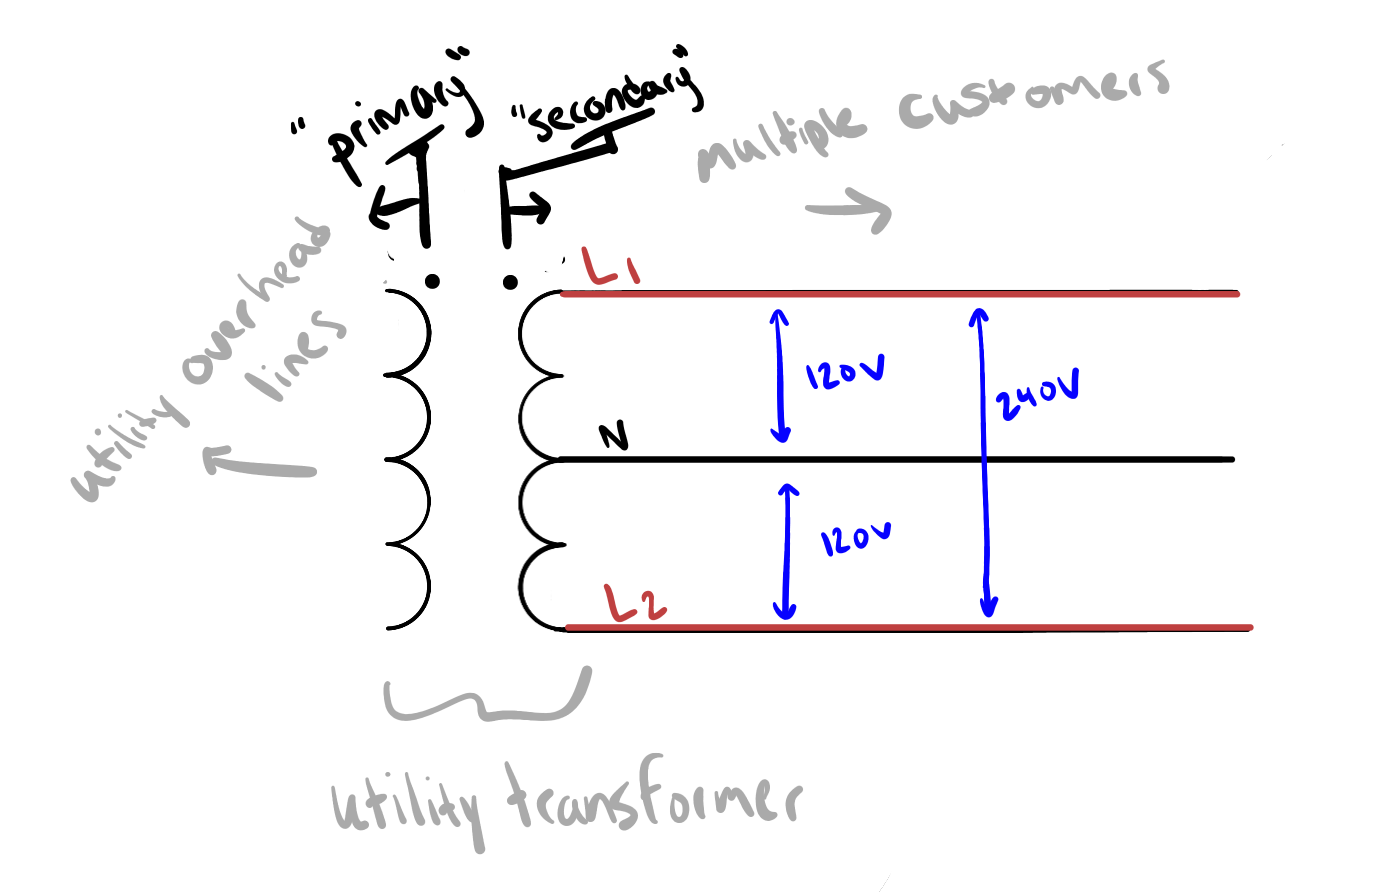 "primary"
"secondary"
multiple customers
utility overhead
lines
L1
120V
240V
N
120V
L2
utility transformer